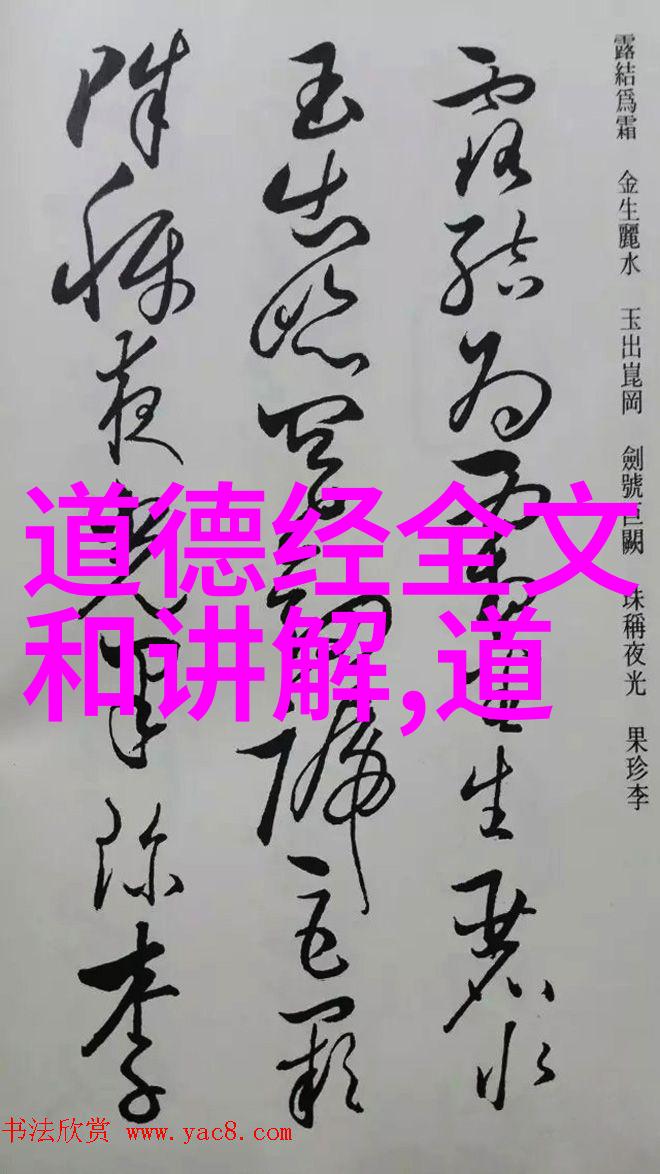 露結爲霜 金生麗水 玉出崑岡 劍號巨闕 珠稱夜光 果珍李
露結爲霜金生麗水
玉出崑岡劍號巨闕
珠稱夜光果珍李
道德经全文
和讲解,道
书法欣赏 www.yac8.com